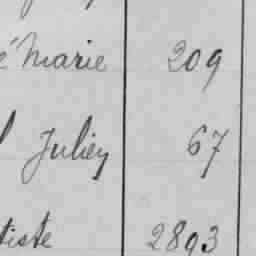 é Marie 209
l Julien 67
tiste 2893